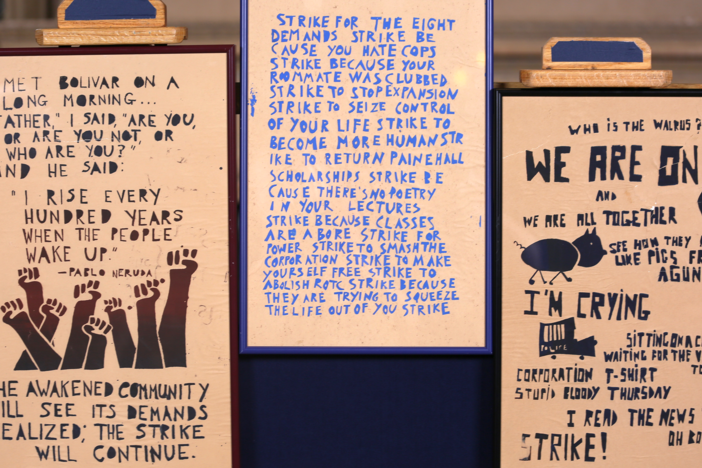 MET BOLIVAR ON A
LONG MORNING...
ATHER," I SAID, "ARE YOU,
OR ARE YOU NOT, OR
WHO ARE YOU?"
ND HE SAID:
"I RISE EVERY
HUNDRED YEARS
WHEN THE PEOPLE
WAKE UP."
—PABLO NERUDA
HE AWAKENED COMMUNITY
ILL SEE ITS DEMANDS
EALIZED; THE STRIKE
WILL CONTINUE.
STRIKE FOR THE EIGHT
DEMANDS STRIKE BE
CAUSE YOU HATE COPS
STRIKE BECAUSE YOUR
ROOMMATE WAS CLUBBED
STRIKE TO STOP EXPANSION
STRIKE TO SEIZE CONTROL
OF YOUR LIFE STRIKE TO
BECOME MORE HUMAN STR
IKE TO RETURN PAINEHALL
SCHOLARSHIPS STRIKE BE
CAUSE THERE'S NO POETRY
IN YOUR LECTURES
STRIKE BECAUSE CLASSES
ARE A BORE STRIKE FOR
POWER STRIKE TO SMASH THE
CORPORATION STRIKE TO MAKE
YOURSELF FREE STRIKE TO
ABOLISH ROTC STRIKE BECAUSE
THEY ARE TRYING TO SQUEEZE
THE LIFE OUT OF YOU STRIKE
WHO IS THE WALRUS?
WE ARE ON
AND
WE ARE ALL TOGETHER
SEE HOW THEY
LIKE PIGS FR
AGUN
I'M CRYING
POLICE
SITTING ON A C
WAITING FOR THE V
TO
CORPORATION T-SHIRT
STUPID BLOODY THURSDAY
I READ THE NEWS
OH BO
STRIKE!